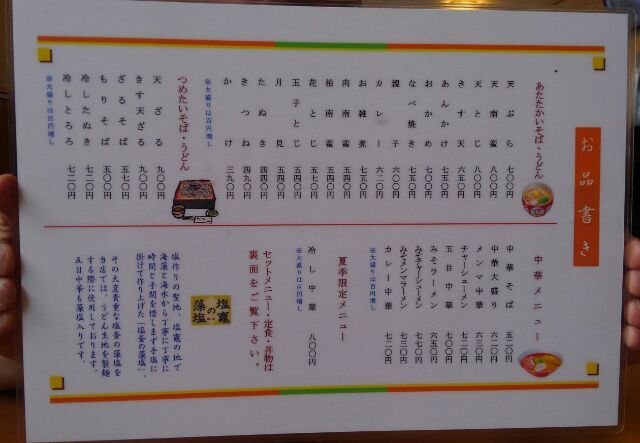 お品書き
あたたかいそば・うどん
天ぷら 七〇〇円
天南蛮 八〇〇円
天とじ 八〇〇円
きす天 六五〇円
あんかけ 七〇〇円
おかめ 七五〇円
なべ焼き 七五〇円
親子 六〇〇円
カレー 六二〇円
お雑煮 七五〇円
肉南蛮 五五〇円
柏南蛮 五五〇円
花とじ 五七〇円
玉子とじ 五四〇円
月見 五四〇円
たぬき 四四〇円
きつね 四九〇円
かけ 三九〇円
※大盛りは百円増し
つめたいそば・うどん
天ざる 九〇〇円
きす天ざる 九〇〇円
ざるそば 五七〇円
もりそば 五〇〇円
冷したぬき 七二〇円
冷しとろろ 七二〇円
※大盛りは百円増し
中華メニュー
中華そば 五二〇円
中華大盛り 六二〇円
メンマ中華 六三〇円
チャーシューメン 七二〇円
五目中華 七〇〇円
みそラーメン 六五〇円
みそチャーシューメン 七七〇円
みそメンマラーメン 七三〇円
カレー中華 七二〇円
※大盛りは百円増し
夏季限定メニュー
冷し中華 八〇〇円
※大盛りは百円増し
セットメニュー・定食・丼物は
裏面をご覧下さい。
塩竈の藻塩
塩作りの聖地、塩竈の地で
海藻と海水から丁寧に丁寧に
時間と手間を惜しまず手塩に
掛けて作り上げた「塩釜の藻塩」。
その大変貴重な塩釜の藻塩を
当店では、うどん生地を製麺
する際に使用しております。
五目中華も藻塩入りです。